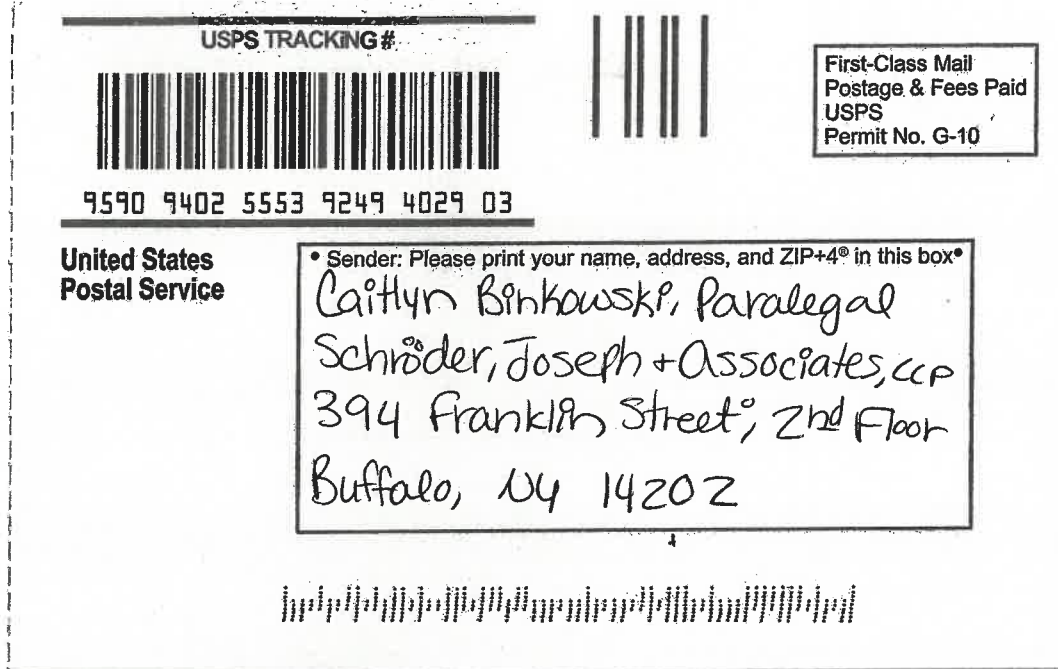 USPS TRACKING #
First-Class Mail
Postage & Fees Paid
USPS
Permit No. G-10
9590 9402 5553 9249 4029 03
United States
Postal Service
• Sender: Please print your name, address, and ZIP+4® in this box•
Caitlyn Binkowski, Paralegal
Schröder, Joseph + Associates, LLP
394 Franklin Street, 2nd Floor
Buffalo, NY 14202